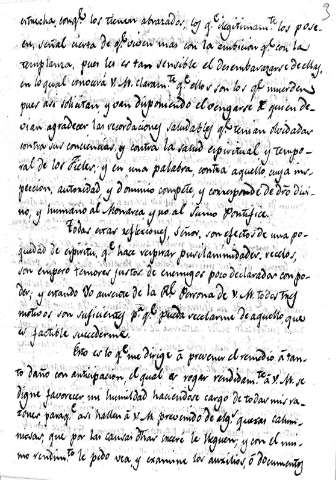 3
estrecha, conq.e los tienen abrazados, los q.e ilegitimam.te los posen
en señal cierta de q.e viven mas con la ambicion q.e con la
templanza, pues les es tan sensible el desembarazarse de ellas,
en lo qual conocerá V. M. claram.te q.e ellos son los q.e muerden
pues asi solicitan y van disponiendo el vengarse de quien de-
vian agradecer las recordaciones saludables q.e tenian olvidadas
contra sus conciencias, y contra la salud espiritual y tempo-
ral de los Fieles; y en una palabra contra aquello cuya ins-
peccion, autoridad y dominio compete, y corresponde de dro divi-
no, y humano al Monarca y no al Sumo Pontifice.
Todas estas reflexiones, Señor, son efectos de una po-
quedad de espiritu, q.e hace respirar pusilanimidades, recelos,
son empero temores justos de enemigos poco declarados con po-
der, y estando Yo ausente de la R.l Persona de V. M. todos tres
motivos son suficientes p.a q.e pueda recelarme de aquello que
es factible sucederme.
Esto es lo q.e me dirige á prevenir el remedio á tan-
to daño con anticipacion el qual es rogar rendidam.te á V. M. se
digne favorecer mi humildad haciendose cargo de todas mis ra-
zones paraq.e asi hallen á V. M. prevenido de alg.s quexas calum-
niosas, que por las causas dhas le lleguen; y con el mis-
mo rendim.to le pido vea y examine los auxilios, ó documentos